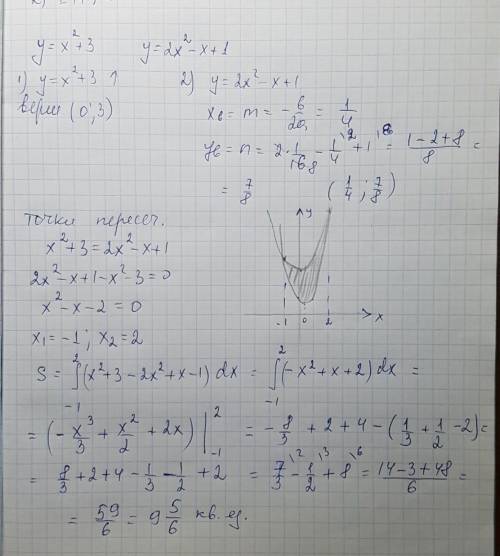 y=x²+3   y=2x²-x+1
1) y=x²+3 ↑   2) y=2x²-x+1
верш (0;3)   xв = m = -b/2a = 1/4
yв = n = 2·1/16 8 - 1/4 \2 + 1 \8 = (1-2+8)/8 =
= 7/8   (1/4; 7/8)
точки пересеч.
x²+3=2x²-x+1
2x²-x+1-x²-3=0
x²-x-2=0
x₁=-1; x₂=2
y
-1 0 2 x
S = ∫₋₁² (x²+3-2x²+x-1) dx = ∫₋₁² (-x²+x+2) dx =
= (-x³/3 + x²/2 + 2x) |₋₁² = -8/3 + 2 + 4 - (1/3 + 1/2 - 2) =
= 8/3 + 2 + 4 - 1/3 - 1/2 + 2 = 7/3 \2 - 1/2 \3 + 8 \6 = (14-3+48)/6 =
= 59/6 = 9 5/6 кв. ед.